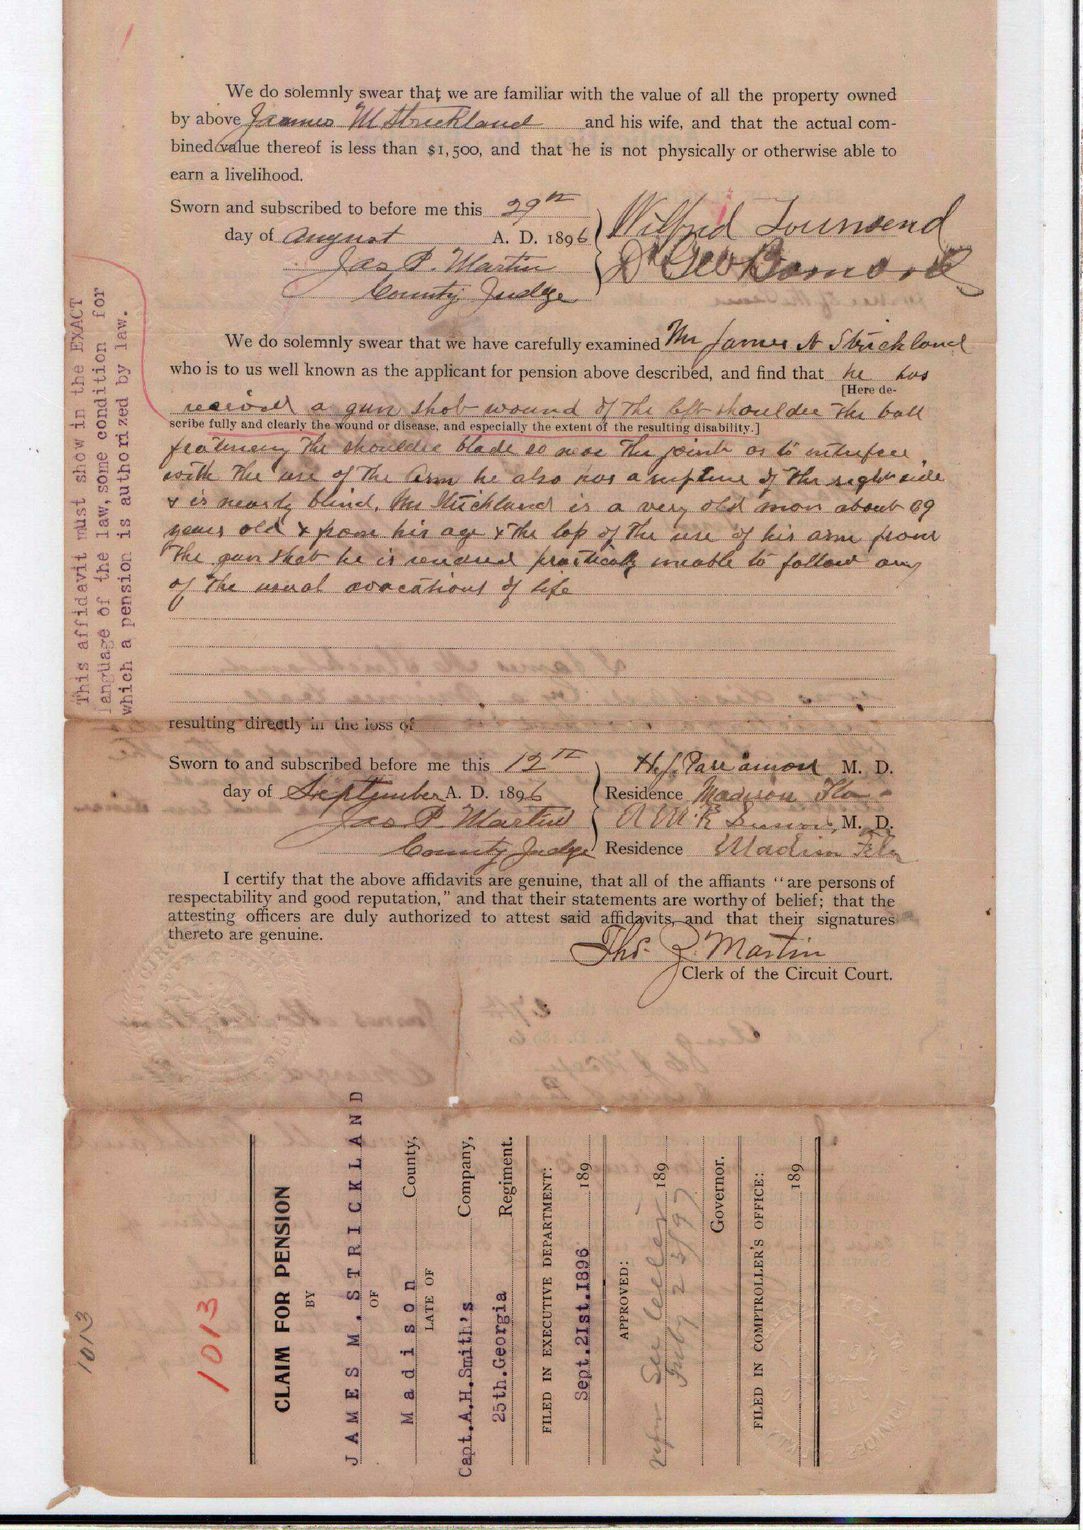 We do solemnly swear that we are familiar with the value of all the property owned
by above Jaames M Strickland and his wife, and that the actual com-
bined value thereof is less than $1,500, and that he is not physically or otherwise able to
earn a livelihood.
Sworn and subscribed to before me this 29th
day of august A. D. 1896
Jas P. Martin
County Judge
Wilfrid Townsend
Dr Geo
We do solemnly swear that we have carefully examined Mr James Strickland
who is to us well known as the applicant for pension above described, and find that he has
[Here de-
received a gun shot wound of the left shoulder the ball
scribe fully and clearly the wound or disease, and especially the extent of the resulting disability.]
the shoulder blade so near the joint as to
with the use of the arm he also has a rupture of the right side
& is nearly blind, Mr Strickland is a very old man about 69
years old & from his age & the of the use of his arm from
the gun shot he is practically unable to follow any
of the usual avocations of life
resulting directly in the loss of
Sworn to and subscribed before me this 12th
day of September A. D. 1896
Jas P. Martin
County Judge
H. J. Parramore M. D.
Residence Madison Fla-
M. D.
Residence Madison Fla
I certify that the above affidavits are genuine, that all of the affiants "are persons of
respectability and good reputation," and that their statements are worthy of belief; that the
attesting officers are duly authorized to attest said affidavits, and that their signatures
thereto are genuine.
Martin
Clerk of the Circuit Court.
This affidavit must show in the EXACT
language of the law, some condition for
which a pension is authorized by law.
1013
1013
CLAIM FOR PENSION
BY
JAMES M. STRICKLAND
OF
Madison County,
LATE OF
Capt.A.H.Smith's Company,
25th.Georgia Regiment.
FILED IN EXECUTIVE DEPARTMENT:
Sept.21st.1896 189
APPROVED:
See 189
23/97
Governor.
FILED IN COMPTROLLER'S OFFICE:
189